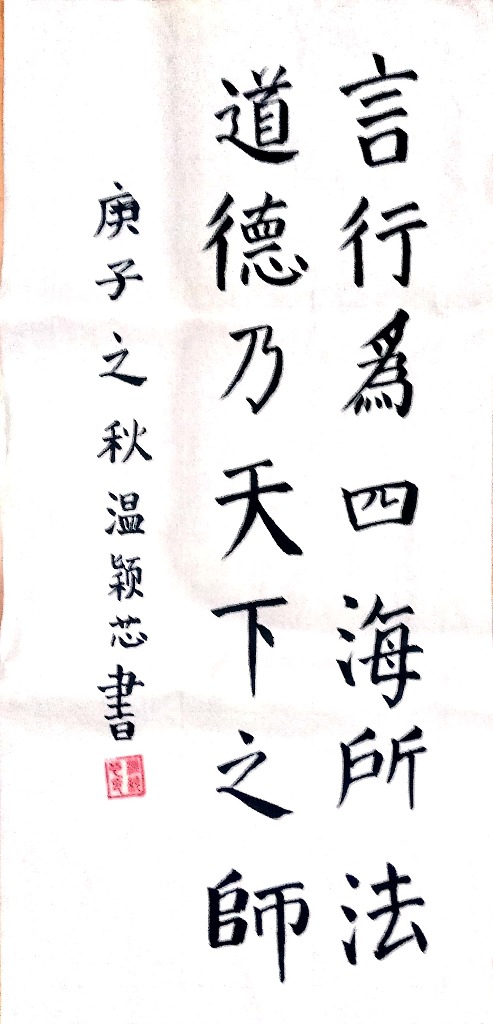 言行為四海所法
道德乃天下之師
庚子之秋温颖芯書